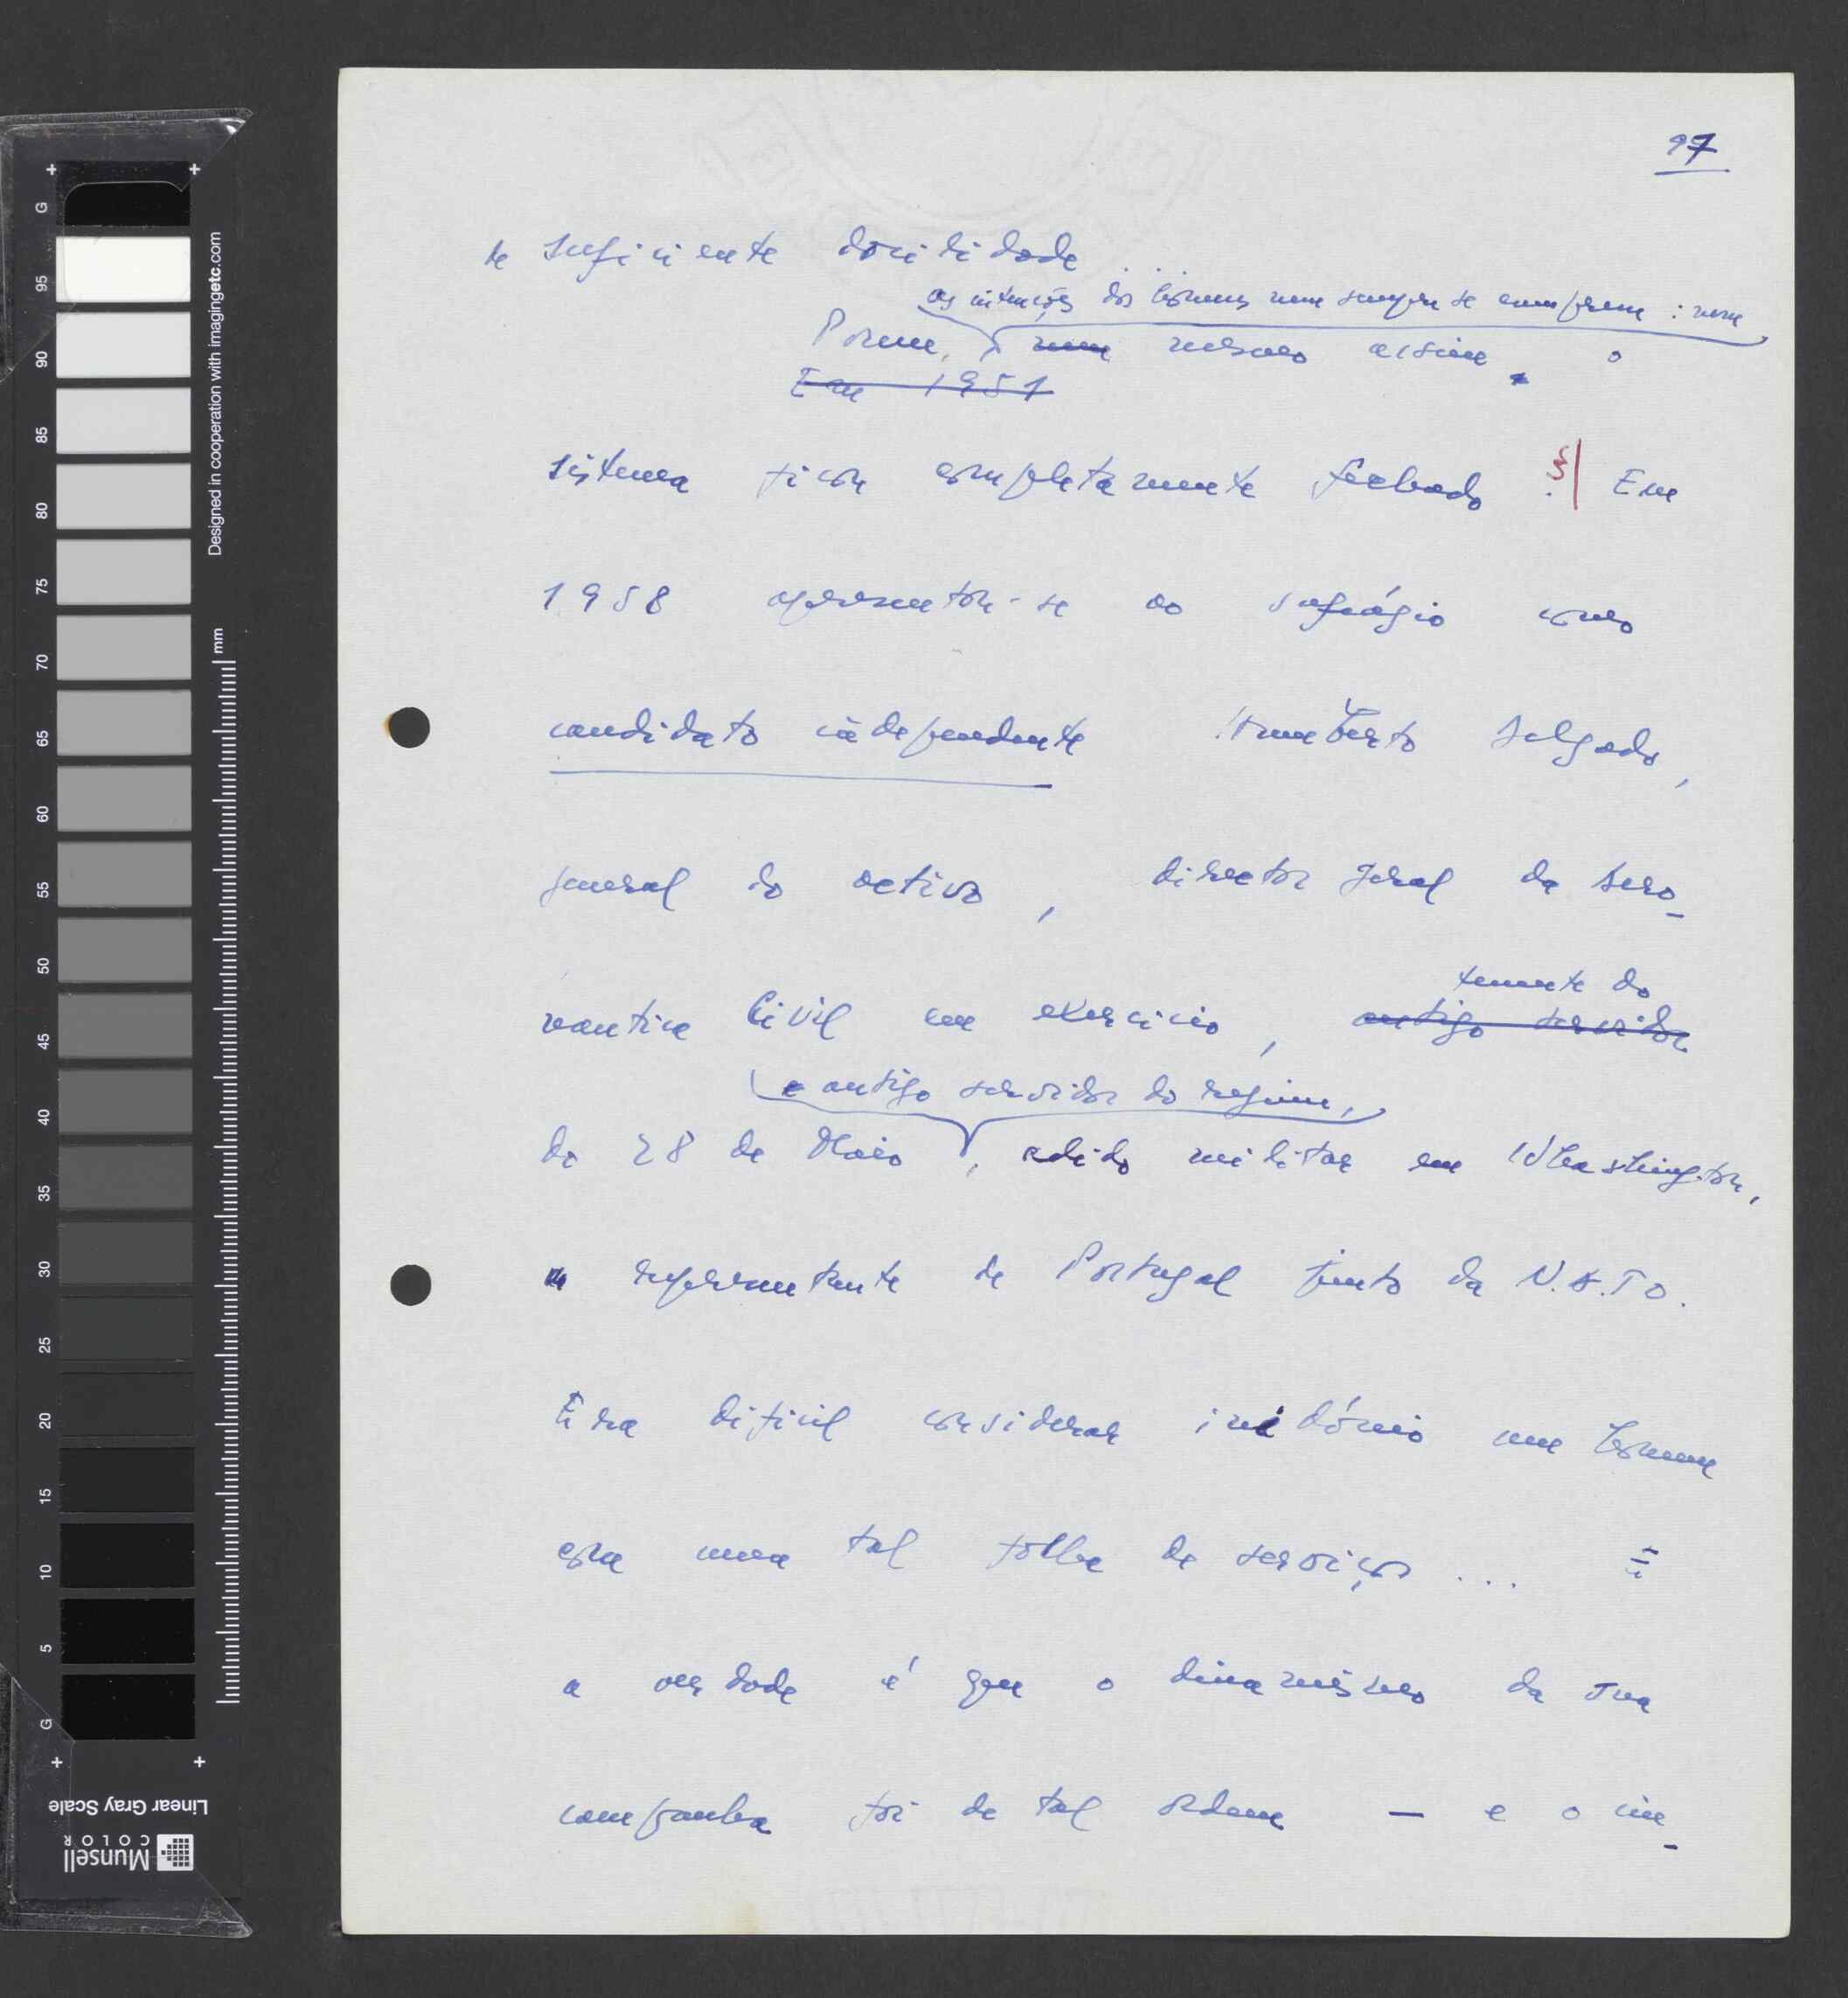 97
te suficiente docilidade ...
as intenções dos homens nem sempre se cumprem : nem
Porem, nem mesmo assim o
Em 1951
sistema ficou completamente fechado. § Em
1958 apresentou-se ao sufrágio como
candidato independente Humberto Delgado,
general do activo, director geral da Aero-
nautica Civil em exercicio, antigo servidor
tenente do
do 28 de Maio, adido militar em Whashington,
e antigo servidor do regime,
representante de Portugal junto da N.A.T.O.
Era dificil considerar inidónio um homem
com uma tal folha de serviços ... E
a verdade é que o dinamismo da sua
campanha foi de tal ordem — e o im-
G 95 90 85 80 75 70 65 60 55 50 45 40 35 30 25 20 15 10 5 G
mm
Designed in cooperation with imagingetc.com
Linear Gray Scale
Munsell
COLOR